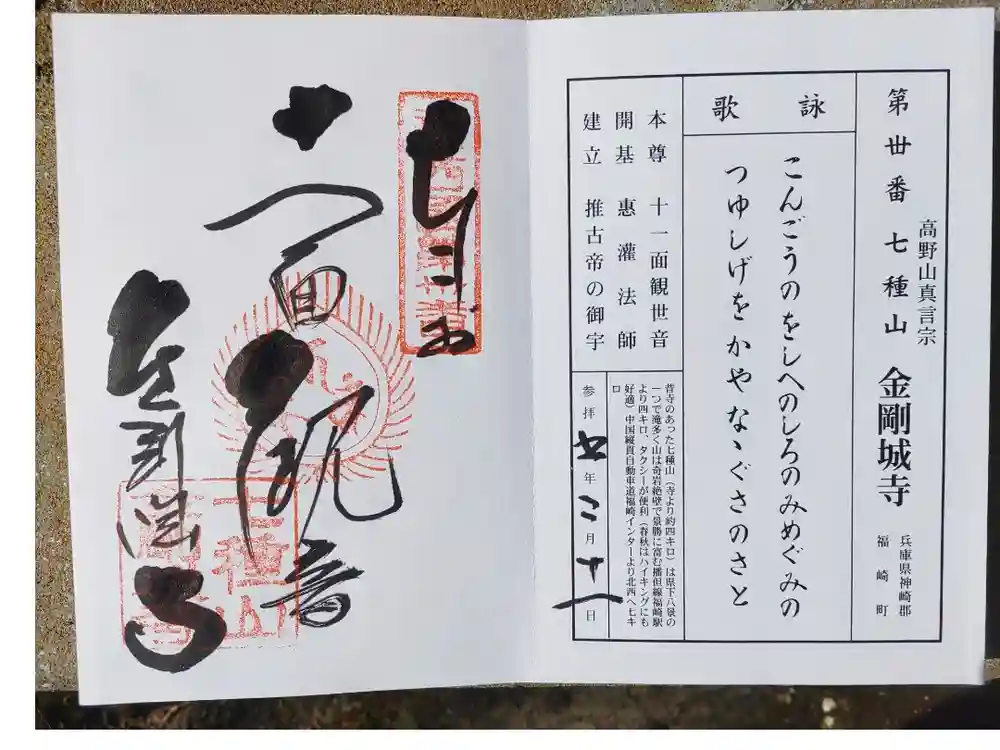 高野山真言宗
第丗番 七種山 金剛城寺
兵庫県神崎郡
福崎町
詠歌
こんごうのをしへのしろのみめぐみの
つゆしげをかやなゝぐさのさと
本尊 十一面観世音
開基 惠灌法師
建立 推古帝の御宇
昔寺のあった七種山（寺より約四キロ）は県下八景の
一つで滝多く山は奇岩絶壁で景勝に富む播但線福崎駅
より四キロ、タクシーが便利（春秋はハイキングにも
好適）中国縦貫自動車道福崎インターより北西へ七キ
ロ
参拝 七年二月十一日
十一面観音
七種山